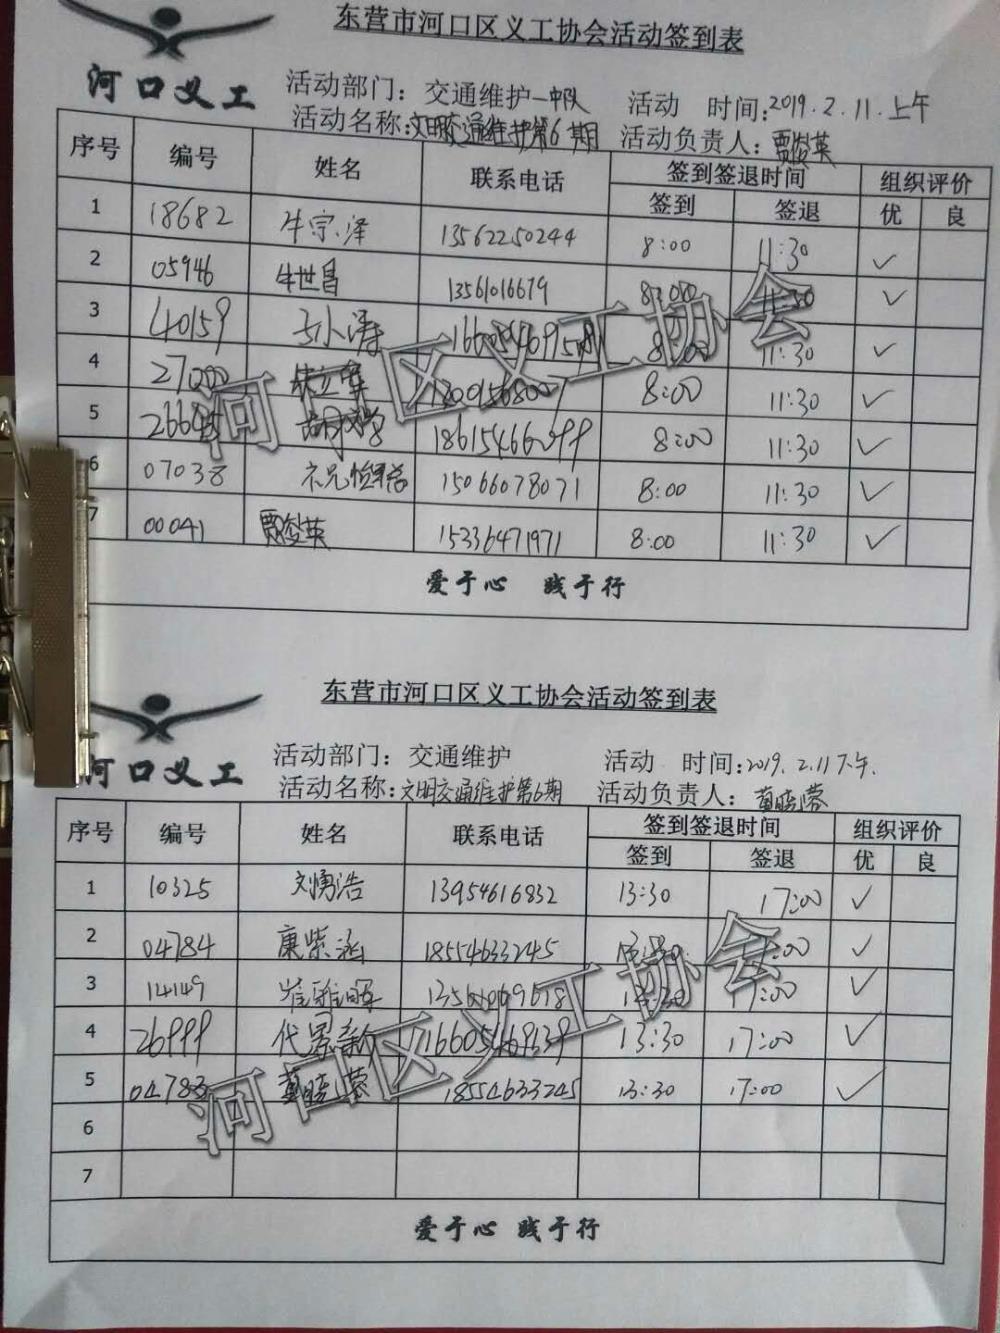 东营市河口区义工协会活动签到表
河口义工
活动部门：交通维护一中队 活动 时间:2019.2.11.上午
活动名称:文明交通维护第6期 活动负责人：贾俊英
序号 编号 姓名 联系电话 签到签退时间 组织评价
签到 签退 优 良
1 18682 牛宗泽 13562250244 8:00 11:30 ✓
2 05946 牛世昌 13561016679 8:00 11:30 ✓
3 40159 8:00 11:30 ✓
4 8:00 11:30 ✓
5 8:00 11:30 ✓
6 07038 15066078071 8:00 11:30 ✓
7 00041 贾俊英 15336471971 8:00 11:30 ✓
河口区义工协会
爱于心 践于行
东营市河口区义工协会活动签到表
河口义工
活动部门：交通维护 活动 时间:2019.2.11下午.
活动名称:文明交通维护第6期 活动负责人：
序号 编号 姓名 联系电话 签到签退时间 组织评价
签到 签退 优 良
1 10325 刘勇浩 13954616832 13:30 17:00 ✓
2 04784 康紫涵 18554633245 13:30 17:00 ✓
3 14149 13:30 17:00 ✓
4 26999 代景新 16605469139 13:30 17:00 ✓
5 04783 18554633245 13:30 17:00 ✓
6
7
河口区义工协会
爱于心 践于行